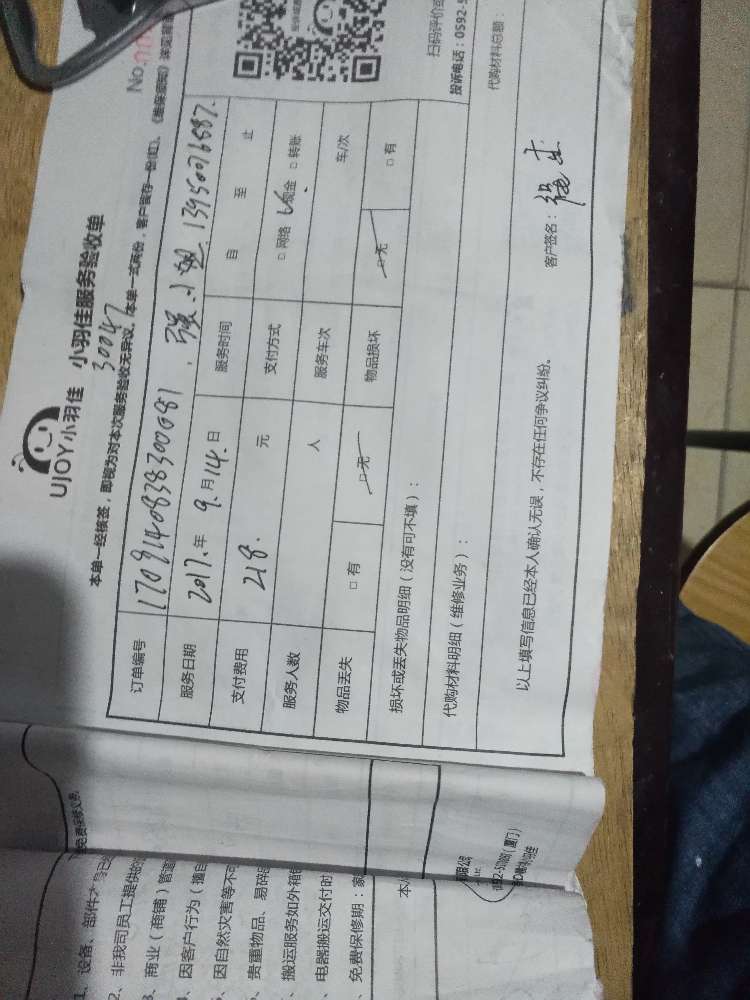 UJOY小羽佳 小羽佳服务验收单
30047
No.
本单一经核签，即视为对本次服务验收无异议。本单一式两份，客户留存一份(红)。
订单编号 170914083830081 . 张小姐 13950076587.
服务日期 2017.年 9.月14.日 服务时间 自 至 止
支付费用 218. 元 支付方式 □ 网络 现金 □ 转账
服务人数 人 服务车次 车/次
物品丢失 □ 有 □ 无 物品损坏 □ 无 □ 有
损坏或丢失物品明细（没有可不填）：
扫码评价或
投诉电话：0592-5
代购材料明细（维修业务）：
代购材料总额：
客户签名：
以上填写信息已经本人确认无误，不存在任何争议纠纷。
免费保修义务
1、设备、部件
2、非我司员工提供的
3、商业（商铺）管道
因客户行为（擅自
因自然灾害等不可
贵重物品、易碎品
搬运服务如外箱
电器搬运交付时
免费保修期：家
有限公司
（厦门）